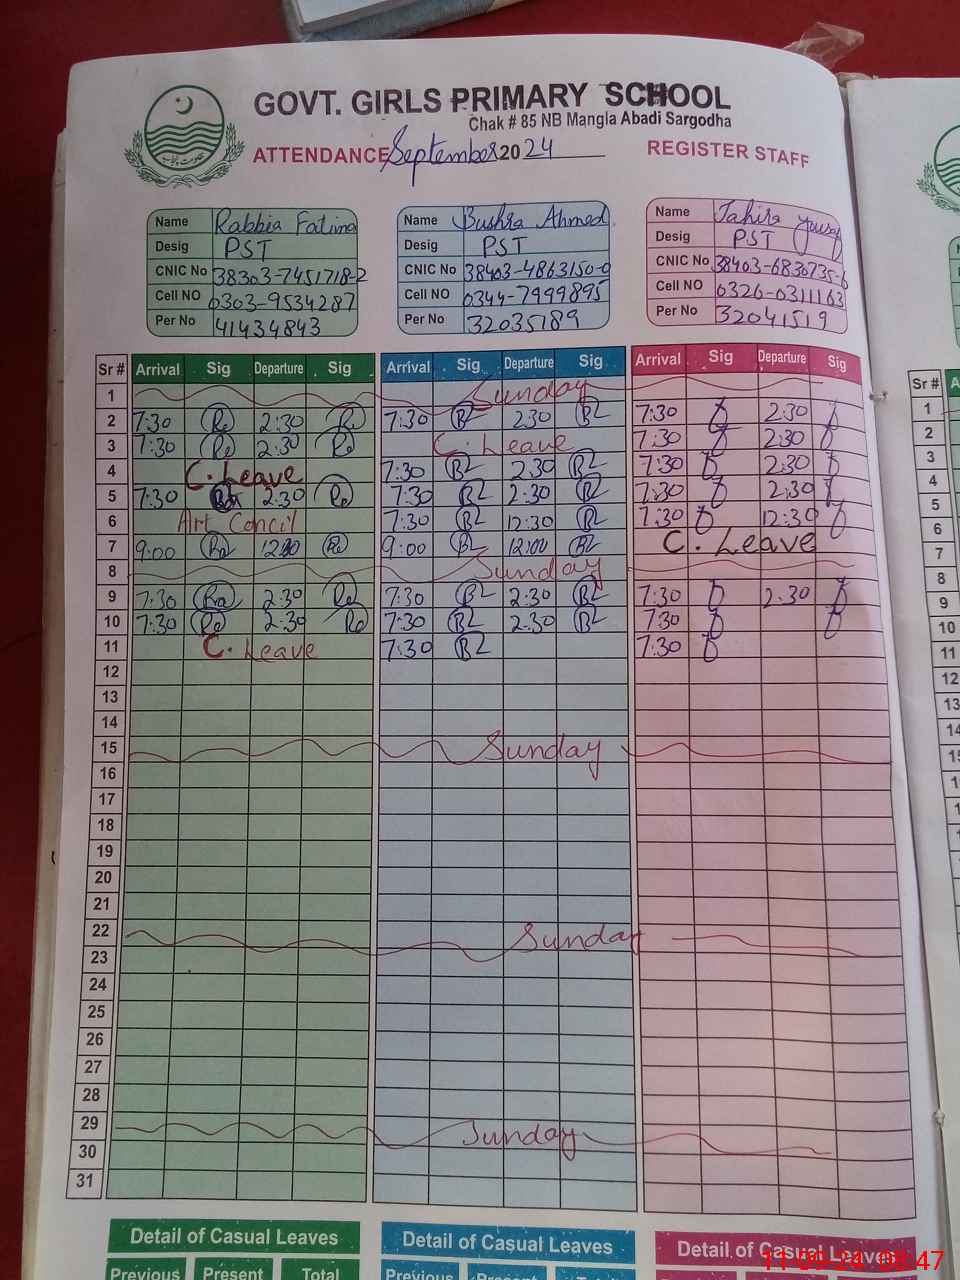 GOVT. GIRLS PRIMARY SCHOOL
Chak # 85 NB Mangla Abadi Sargodha
ATTENDANCE September 2024 REGISTER STAFF
Name Rabbia Fatima Name Bushra Ahmed Name Tahira Yousaf
Desig PST Desig PST Desig PST
CNIC No 38303-7451718-2 CNIC No 38403-4863150-0 CNIC No 38403-6830735-6
Cell NO 0303-9534287 Cell NO 0344-7999895 Cell NO 0326-0311163
Per No 41434843 Per No 32035189 Per No 32041519
Sr # Arrival Sig Departure Sig Arrival Sig Departure Sig Arrival Sig Departure Sig Sr #
1 Sunday 1
2 7:30 Re 2:30 Re 7:30 2:30 7:30 2:30 2
3 7:30 Re 2:30 Re C. Leave 7:30 2:30 3
4 C. Leave 7:30 2:30 7:30 2:30 4
5 7:30 2:30 Re 7:30 2:30 7:30 2:30 5
6 Art Concil 7:30 12:30 7:30 12:30 6
7 9:00 Ra Re 9:00 12:00 C. Leave 7
8 Sunday 8
9 7:30 Ra 2:30 Re 7:30 2:30 7:30 2:30 9
10 7:30 Re 2:30 Re 7:30 2:30 7:30 10
11 C. Leave 7:30 7:30 11
12 12
13 13
14 14
15 Sunday 15
16 16
17 17
18
19
20
21
22 Sunday
23
24
25
26
27
28
29 Sunday
30
31
Detail of Casual Leaves Detail of Casual Leaves Detail of Casual Leaves
Previous Present Total Previous Present